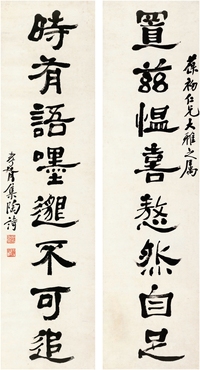 葆初仁兄大雅之属
置兹愠喜憗然自足
時有語嘿邈不可追
孝胥集陶詩